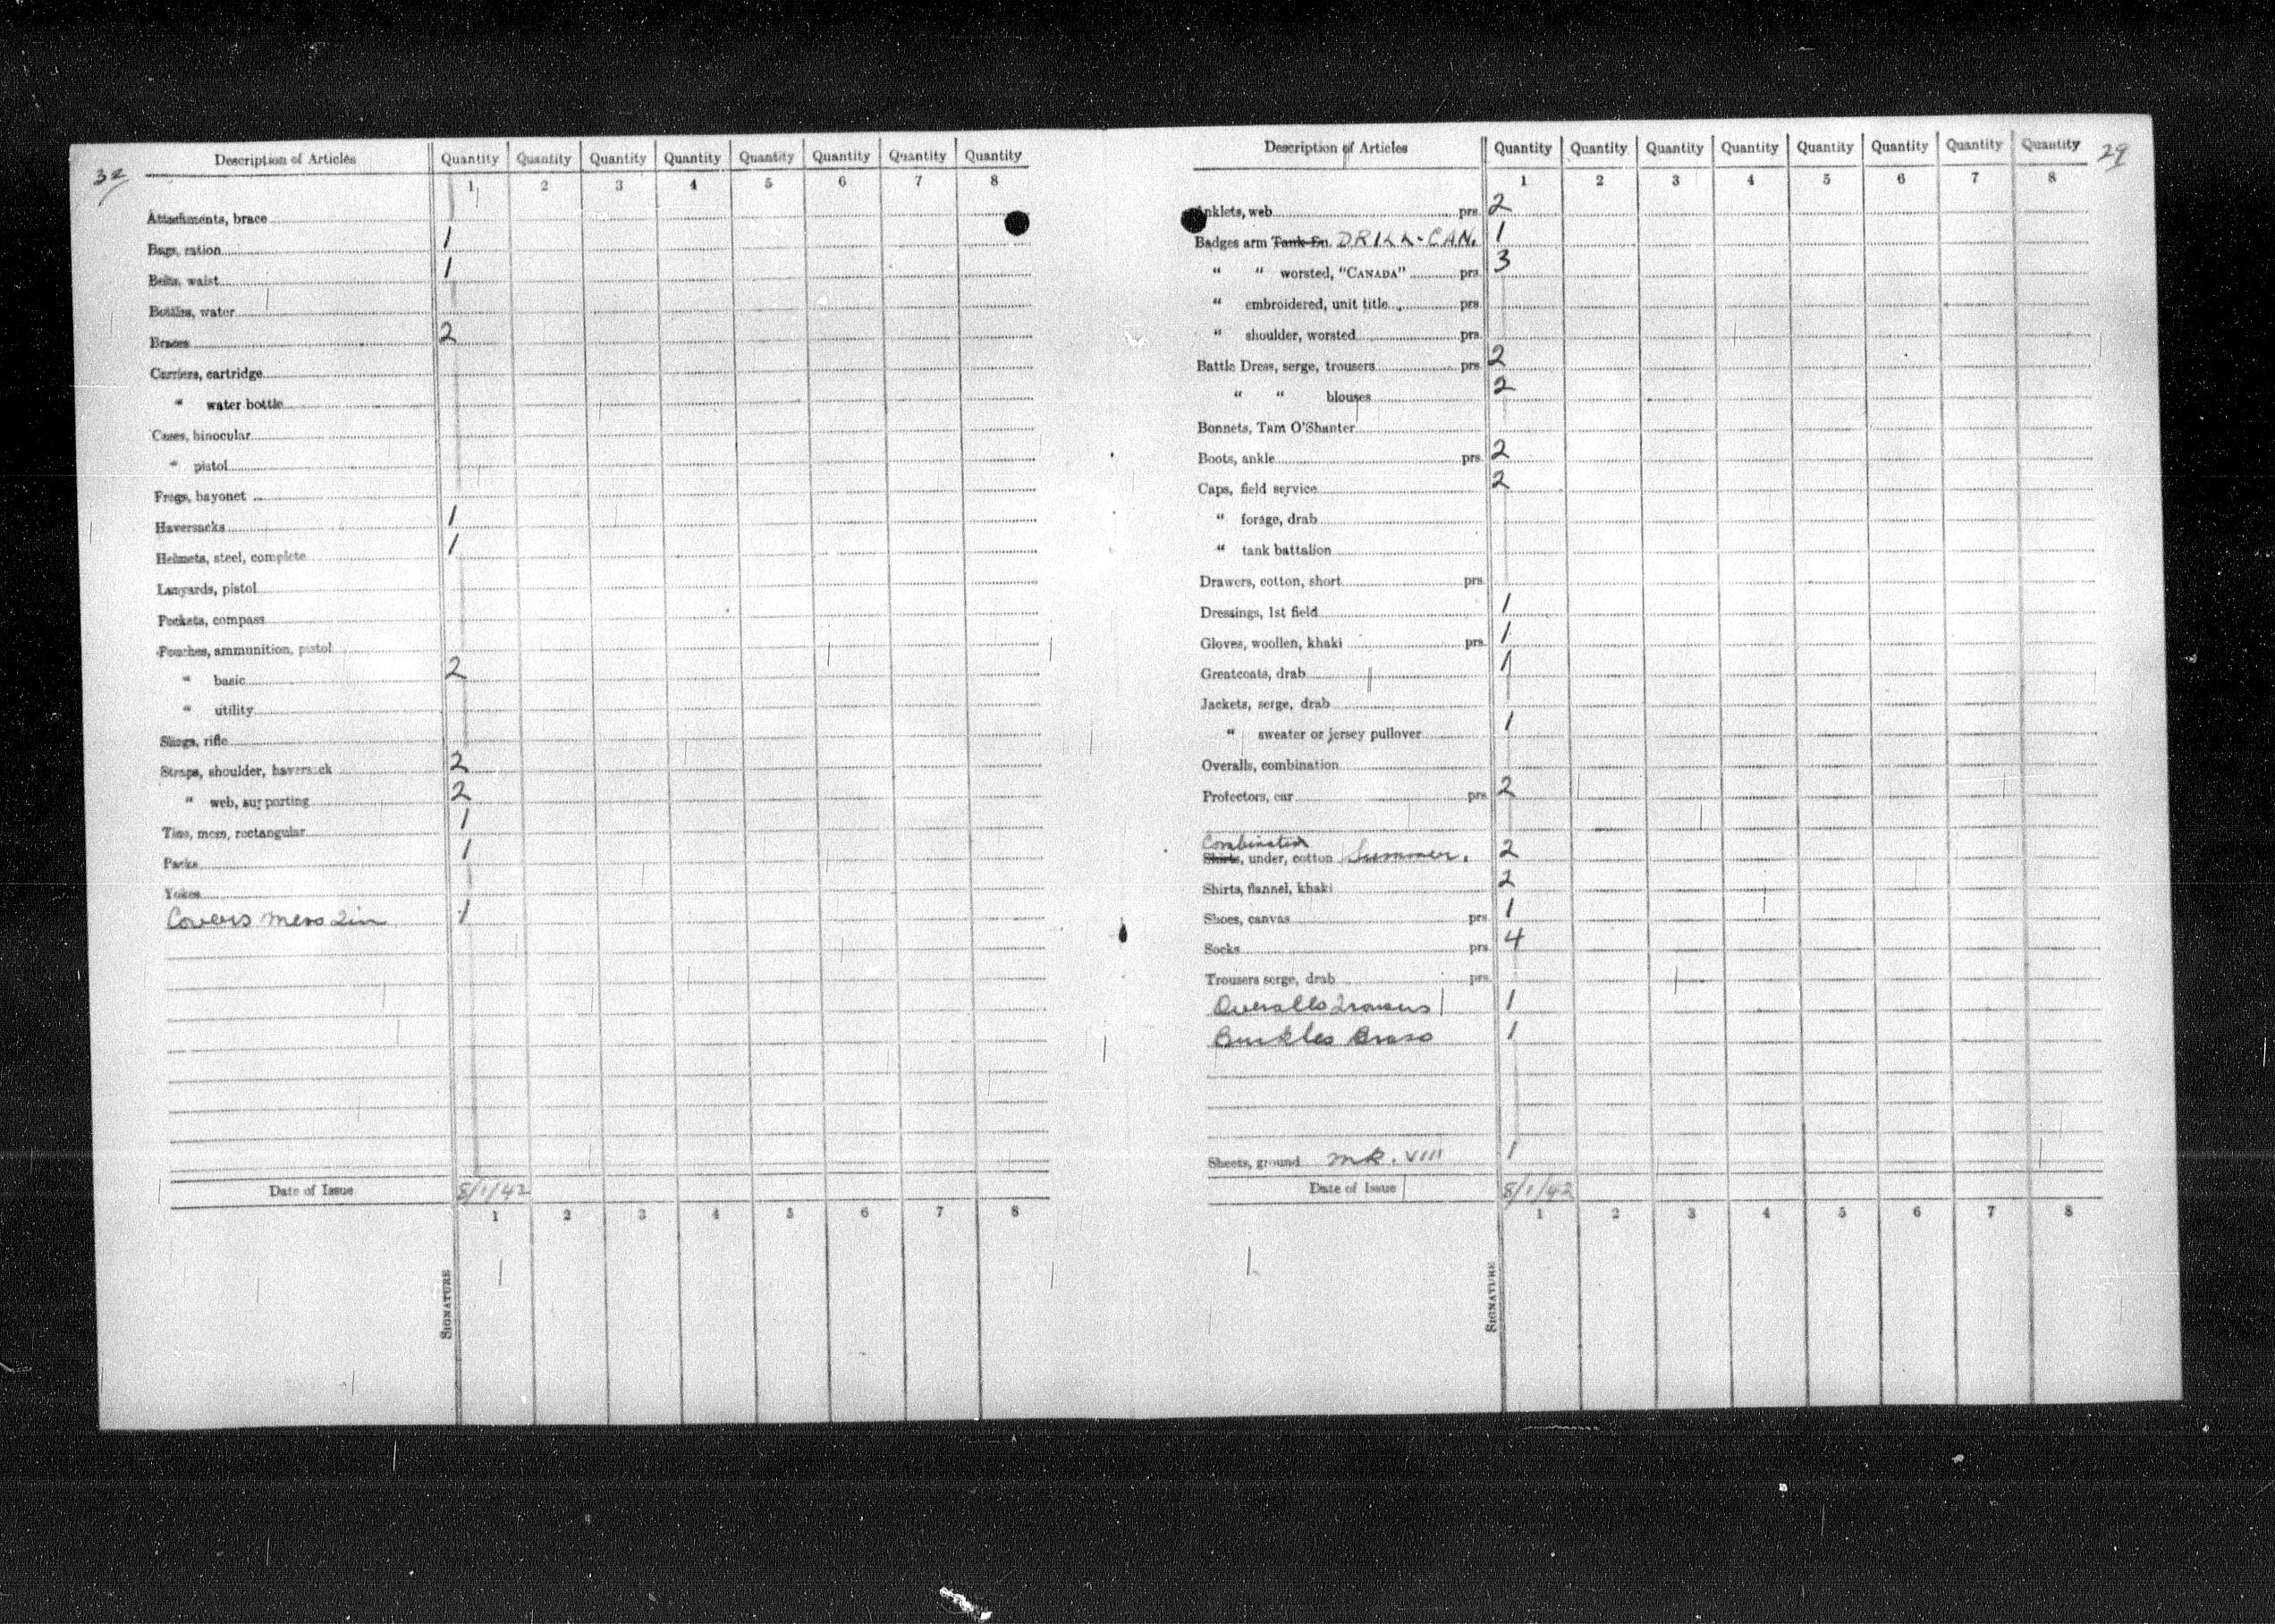 32
Description of Articles Quantity Quantity Quantity Quantity Quantity Quantity Quantity Quantity
1 2 3 4 5 6 7 8
Attachments, brace
Bags, ration 1
Belts, waist 1
Bottles, water
Braces 2
Carriers, cartridge
“ water bottle
Cases, binocular
“ pistol
Frogs, bayonet
Haversacks 1
Helmets, steel, complete 1
Lanyards, pistol
Pockets, compass
Pouches, ammunition, pistol
“ basic 2
“ utility
Slings, rifle
Straps, shoulder, haversack 2
“ web, supporting 2
Tins, mess, rectangular 1
Packs 1
Yokes
Covers mess Tin 1
Date of Issue 8/1/42
1 2 3 4 5 6 7 8
SIGNATURE
29
Description of Articles Quantity Quantity Quantity Quantity Quantity Quantity Quantity Quantity
1 2 3 4 5 6 7 8
Anklets, web prs. 2
Badges arm Tank Bn. DRILL-CAN. 1
“ “ worsted, “CANADA” prs. 3
“ embroidered, unit title prs.
“ shoulder, worsted prs.
Battle Dress, serge, trousers prs. 2
“ “ blouses 2
Bonnets, Tam O'Shanter
Boots, ankle prs. 2
Caps, field service 2
“ forage, drab
“ tank battalion
Drawers, cotton, short prs.
Dressings, 1st field 1
Gloves, woollen, khaki prs. 1
Greatcoats, drab 1
Jackets, serge, drab
“ sweater or jersey pullover 1
Overalls, combination
Protectors, ear prs. 2
Combination
Shirts, under, cotton Summer. 2
Shirts, flannel, khaki 2
Shoes, canvas prs. 1
Socks prs. 4
Trousers serge, drab prs.
Overalls Trousers 1
Buckles Brass 1
Sheets, ground mk. VIII 1
Date of Issue 8/1/42
1 2 3 4 5 6 7 8
SIGNATURE